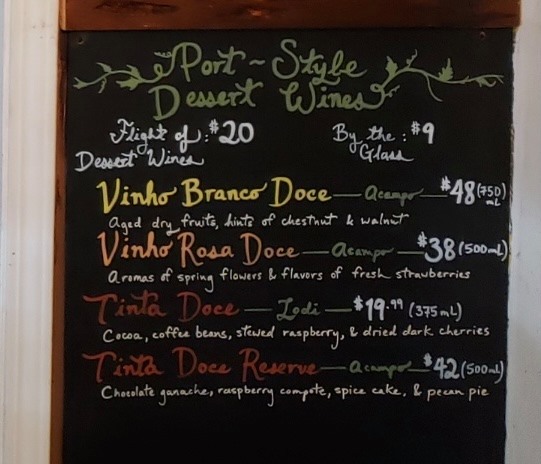 Port ~ Style
Dessert Wines
Flight of : $20
Dessert Wines
By the : $9
Glass
Vinho Branco Doce — Acampo — $48 (750 mL)
Aged dry fruits, hints of chestnut & walnut
Vinho Rosa Doce — Acampo — $38 (500mL)
Aromas of spring flowers & flavors of fresh strawberries
Tinta Doce — Lodi — $19.99 (375mL)
Cocoa, coffee beans, stewed raspberry, & dried dark cherries
Tinta Doce Reserve — Acampo — $42 (500mL)
Chocolate ganache, raspberry compote, spice cake, & pecan pie